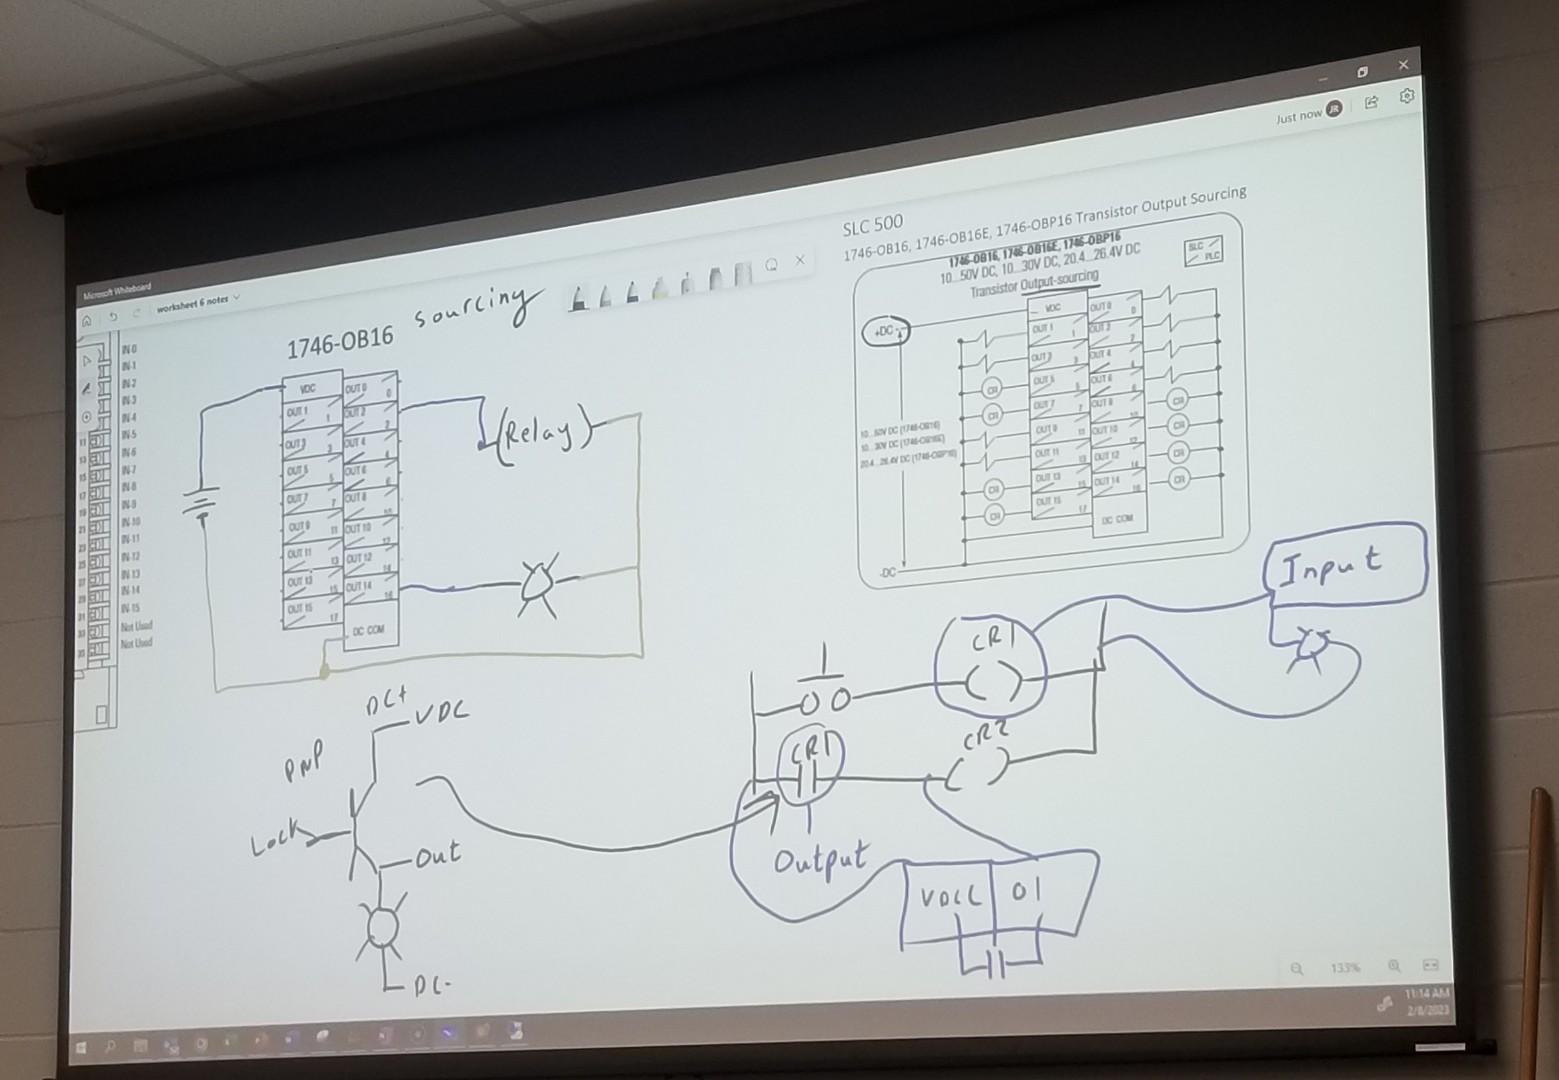 Microsoft Whiteboard
worksheet 6 notes
Just now JR
IN-0
IN-1
IN-2
IN-3
IN-4
IN-5
IN-6
IN-7
IN-8
IN-9
IN-10
IN-11
IN-12
IN-13
IN-14
IN-15
Not Used
Not Used
1746-OB16 sourcing
VDC OUT 0
0
OUT 1
1 OUT 2
2
OUT 3
3 OUT 4
4
OUT 5
5 OUT 6
6
OUT 7
7 OUT 8
10
OUT 9
11 OUT 10
12
OUT 11
13 OUT 12
14
OUT 13
15 OUT 14
16
OUT 15
17
DC COM
(Relay)
SLC 500
1746-OB16, 1746-OB16E, 1746-OBP16 Transistor Output Sourcing
1746-OB16, 1746-OB16E, 1746-OBP16
10...50V DC, 10...30V DC, 20.4...26.4V DC
Transistor Output-sourcing
SLC
PLC
+DC
VDC OUT 0
0
OUT 1
1 OUT 2
2
OUT 3
3 OUT 4
4
OUT 5
5 OUT 6
6
OUT 7
7 OUT 8
10
OUT 9
11 OUT 10
12
OUT 11
13 OUT 12
14
OUT 13
15 OUT 14
16
OUT 15
17
DC COM
CR
CR
CR
CR
CR
CR
CR
CR
10...50V DC (1746-OB16)
10...30V DC (1746-OB16E)
20.4...26.4V DC (1746-OBP16)
-DC
Input
CR1
CR2
CR1
Output
VDCC O1
DC+
VDC
PNP
Lock
Out
DC-
133%
11:14 AM
2/8/2023